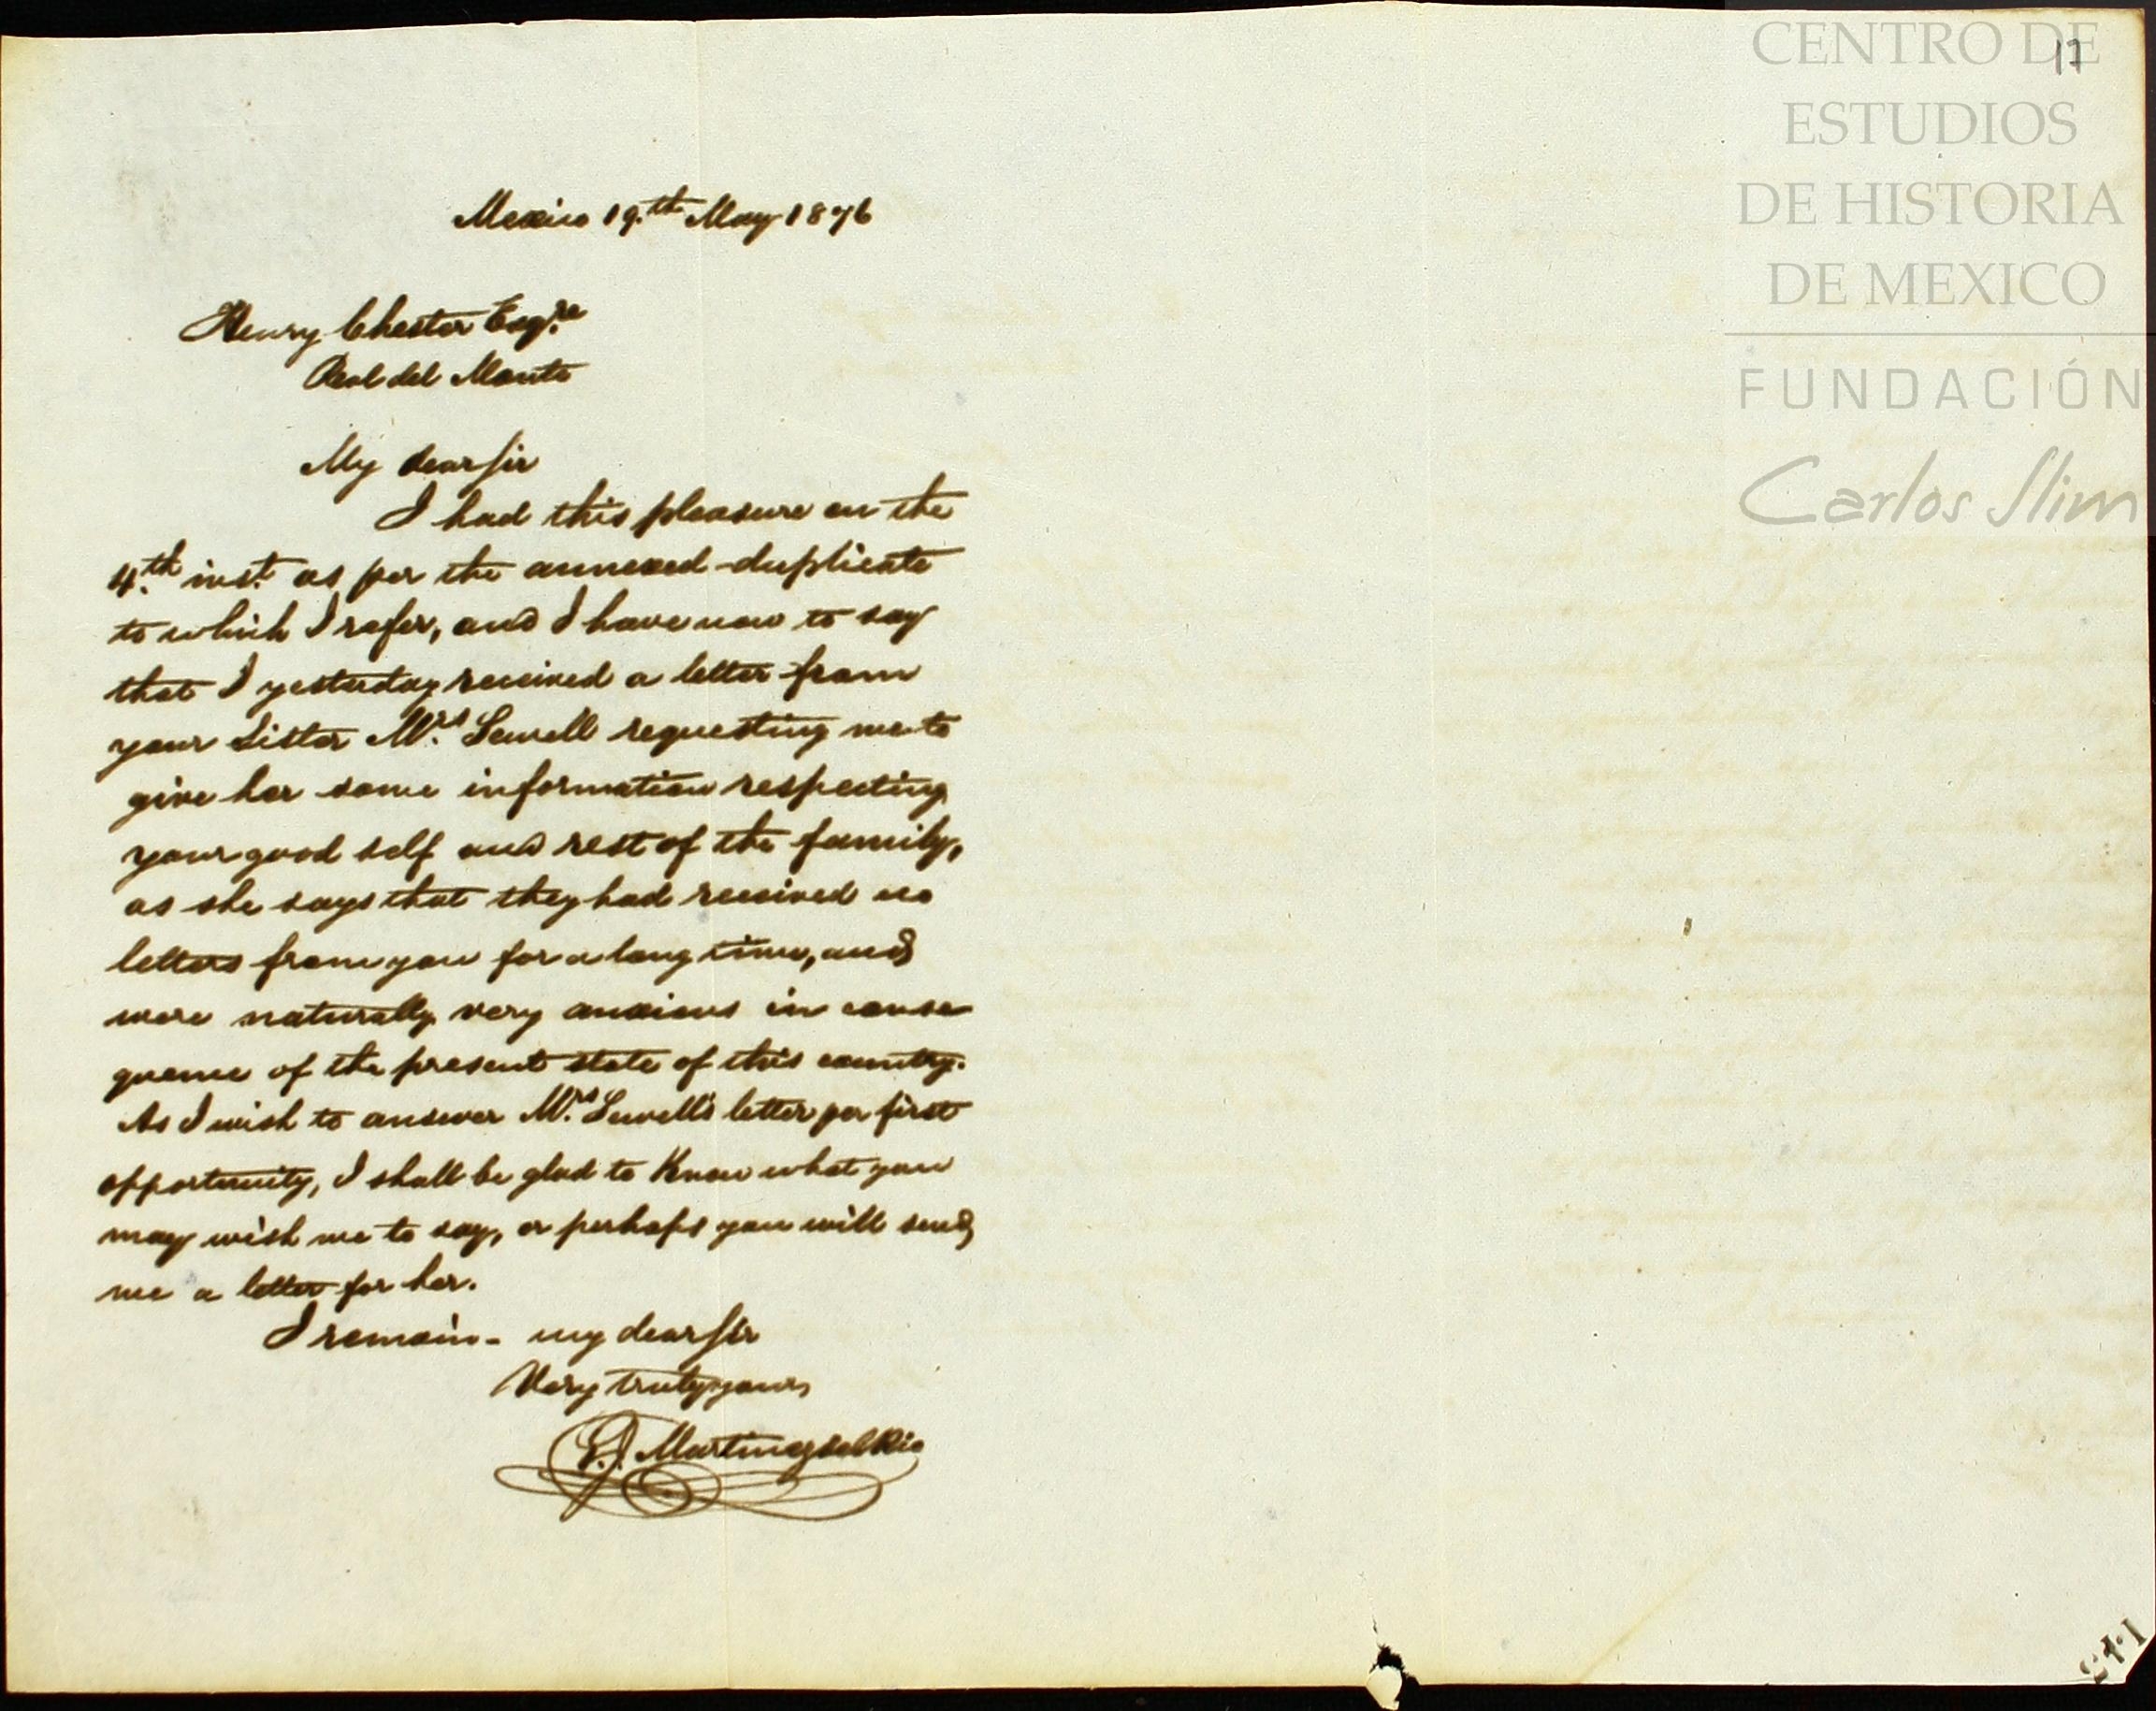 Mexico 19.th May 1876
Henry Chester Esq.re
Real del Monte
My dear Sir
I had this pleasure on the
4.th inst. as per the annexed duplicate
to which I refer, and I have now to say
that I yesterday received a letter from
your Sister M.rs Sewell requesting me to
give her some information respecting
your good self and rest of the family,
as she says that they had received no
letters from you for a long time, and
were naturally very anxious in conse
quence of the present state of this country.
As I wish to answer M.rs Sewell's letter per first
opportunity, I shall be glad to Know what you
may wish me to say, or perhaps you will send
me a letter for her.
I remain - my dear Sir
Very truly yours
Martinez del Rio
17
CENTRO DE
ESTUDIOS
DE HISTORIA
DE MEXICO
FUNDACIÓN
Carlos Slim